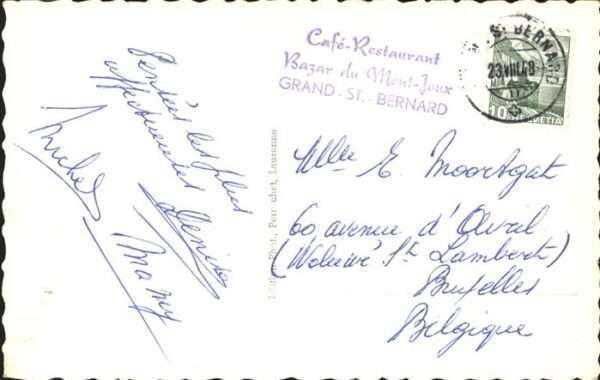 Pensées les plus
affectueuses
Denise
Michel
Mamy
Café-Restaurant
Bazar du Mont-Joux
GRAND-ST.-BERNARD
ST BERNARD
23.VIII.48
10 HELVETIA
Phot. Perrochet, Lausanne
Mlle E. Moortgat
60 avenue d'Avril
(Woluwé St Lambert)
Bruxelles
Belgique